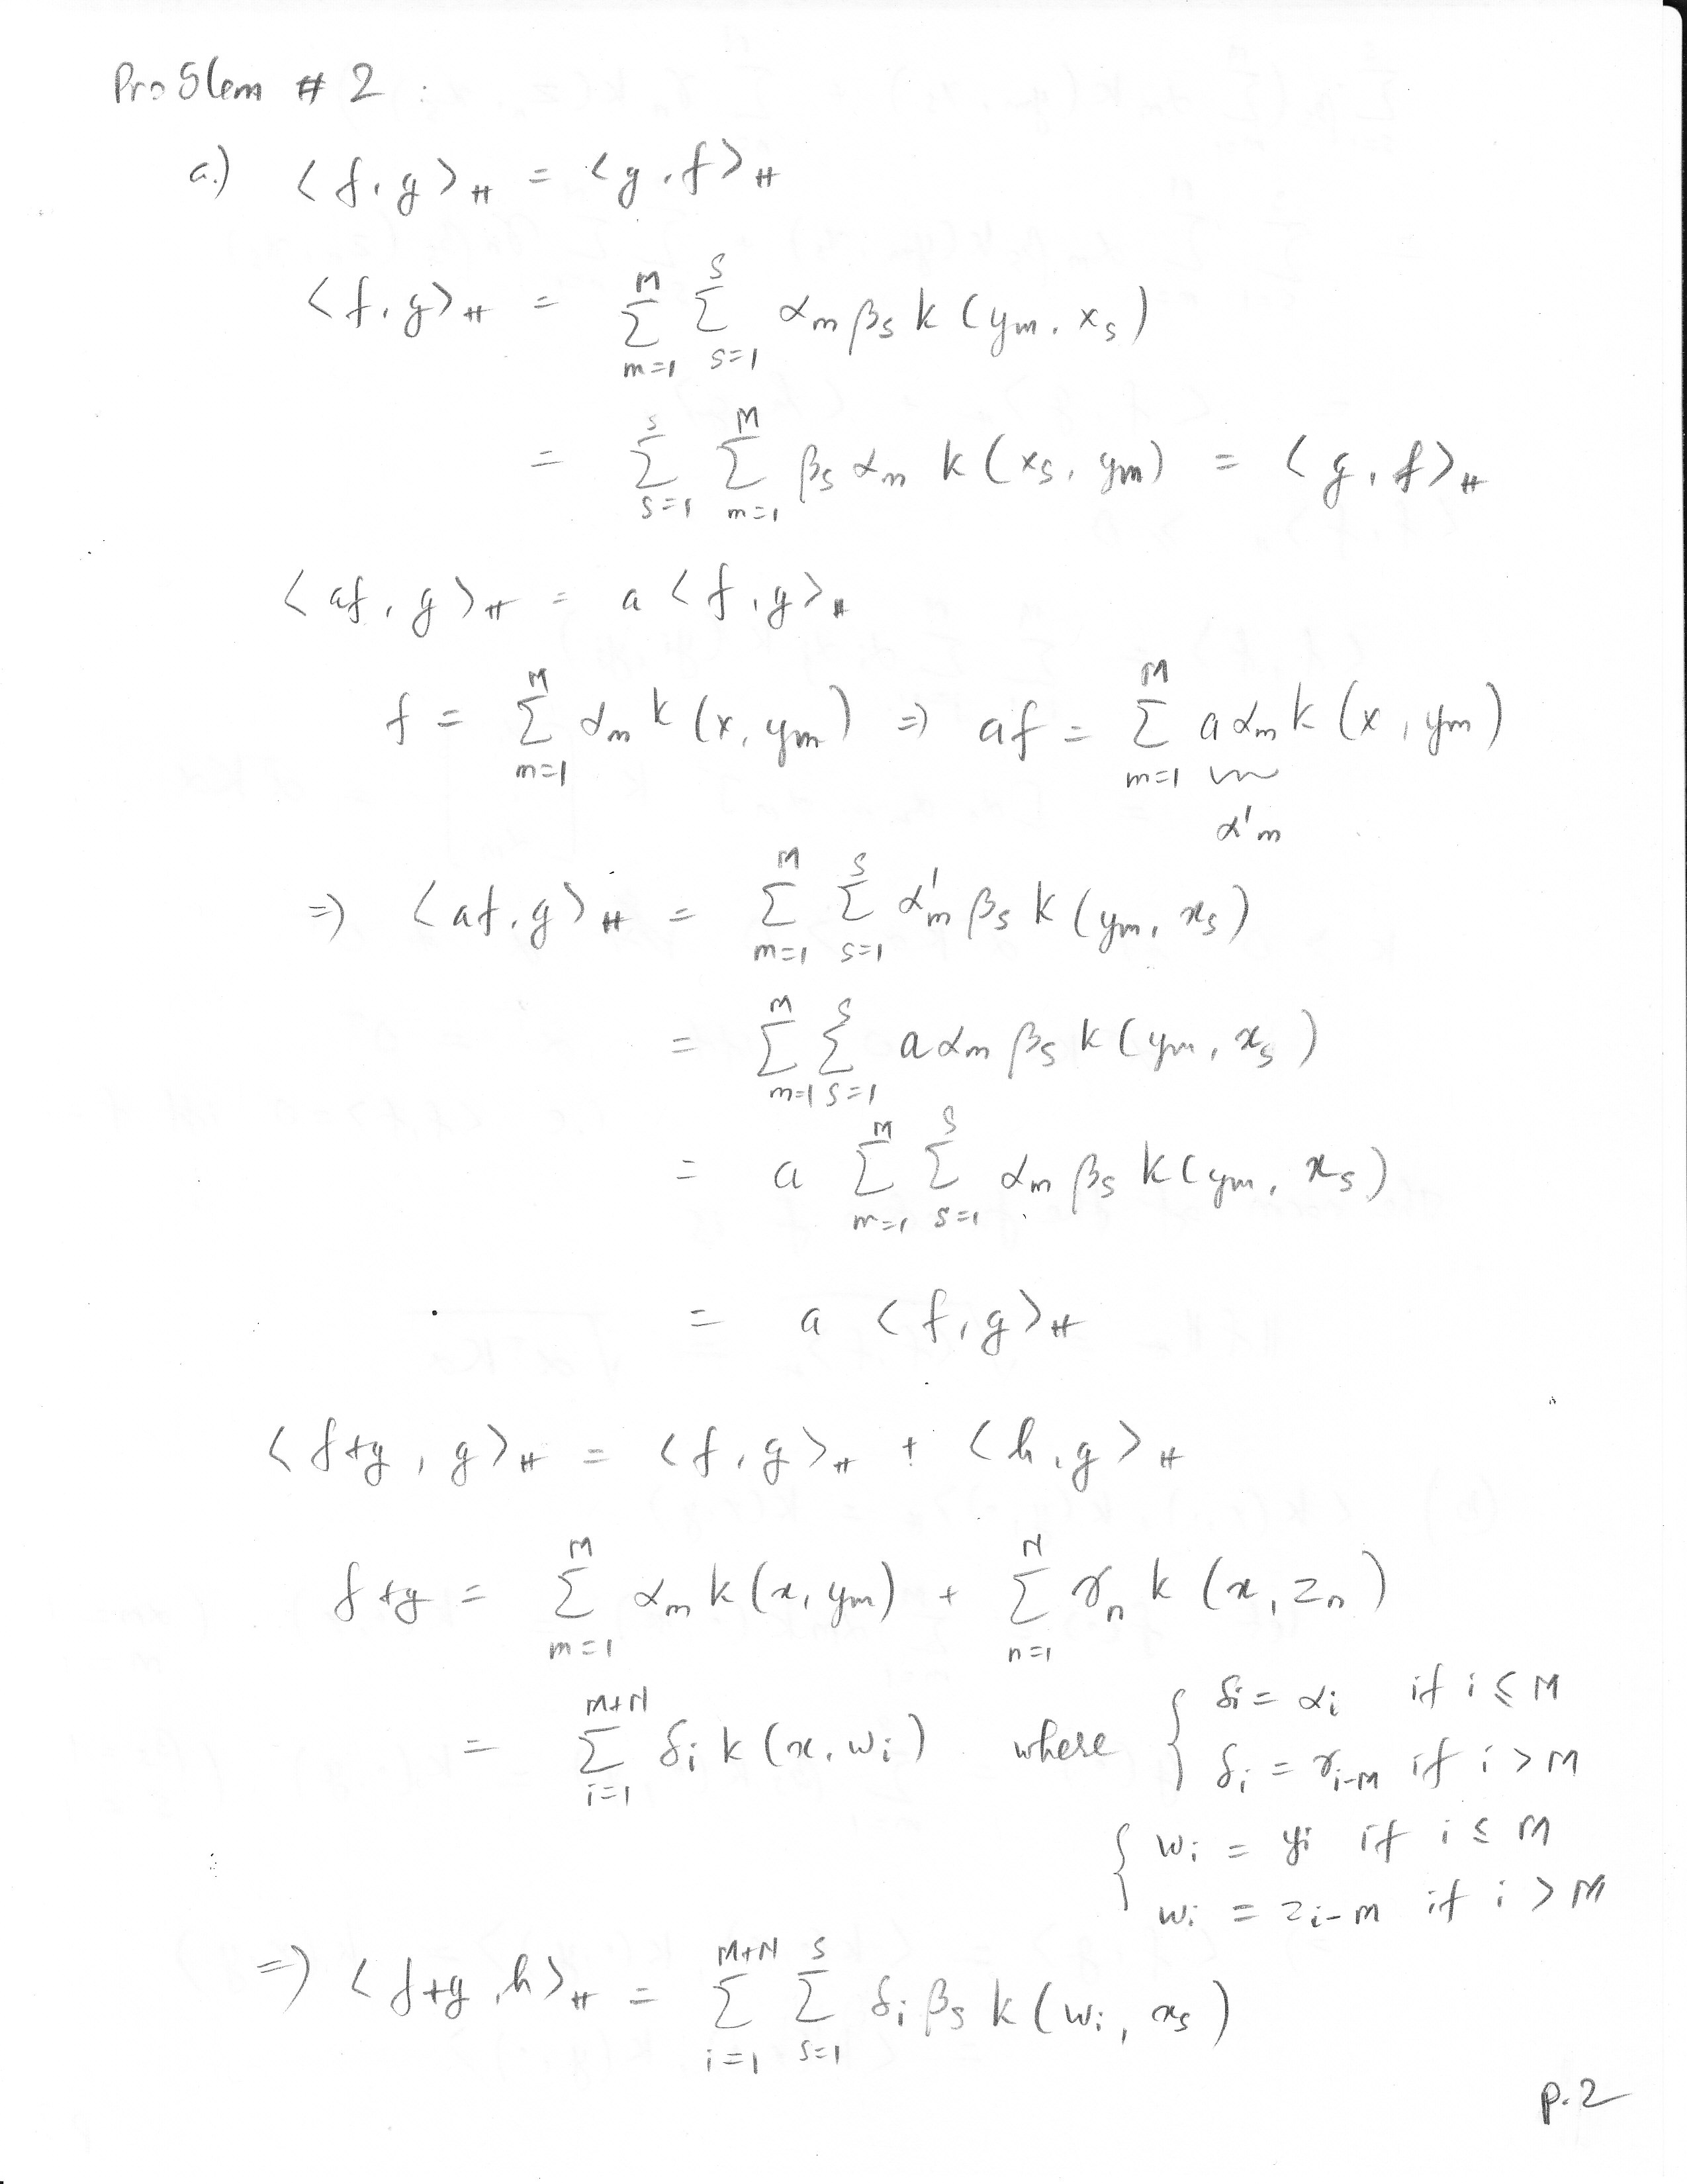 Problem # 2 :
a.) ⟨f, g⟩_H = ⟨g, f⟩_H
⟨f, g⟩_H = Σ_{m=1}^{M} Σ_{s=1}^{S} α_m β_s k(y_m, x_s)
= Σ_{s=1}^{S} Σ_{m=1}^{M} β_s α_m k(x_s, y_m) = ⟨g, f⟩_H
⟨af, g⟩_H = a⟨f, g⟩_H
f = Σ_{m=1}^{M} α_m k(x, y_m) ⇒ af = Σ_{m=1}^{M} aα_m k(x, y_m)
α'_m
⇒ ⟨af, g⟩_H = Σ_{m=1}^{M} Σ_{s=1}^{S} α'_m β_s k(y_m, x_s)
= Σ_{m=1}^{M} Σ_{s=1}^{S} aα_m β_s k(y_m, x_s)
= a Σ_{m=1}^{M} Σ_{s=1}^{S} α_m β_s k(y_m, x_s)
= a⟨f, g⟩_H
⟨f+g, g⟩_H = ⟨f, g⟩_H + ⟨h, g⟩_H
f+g = Σ_{m=1}^{M} α_m k(x, y_m) + Σ_{n=1}^{N} γ_n k(x, z_n)
= Σ_{i=1}^{M+N} δ_i k(x, w_i) where { δ_i = α_i if i ≤ M
δ_i = γ_{i-M} if i > M
{ w_i = y_i if i ≤ M
w_i = z_{i-M} if i > M
⇒ ⟨f+g, h⟩_H = Σ_{i=1}^{M+N} Σ_{s=1}^{S} δ_i β_s k(w_i, x_s)
p.2